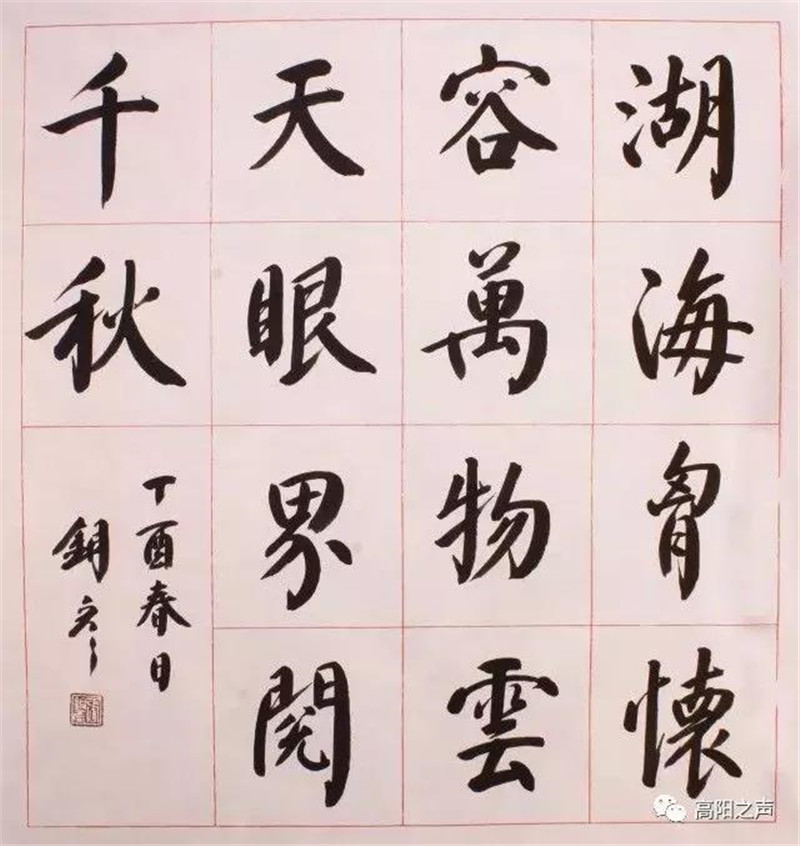 湖海胷懷
容萬物雲
天眼界閱
千秋
丁酉春日
高阳之声